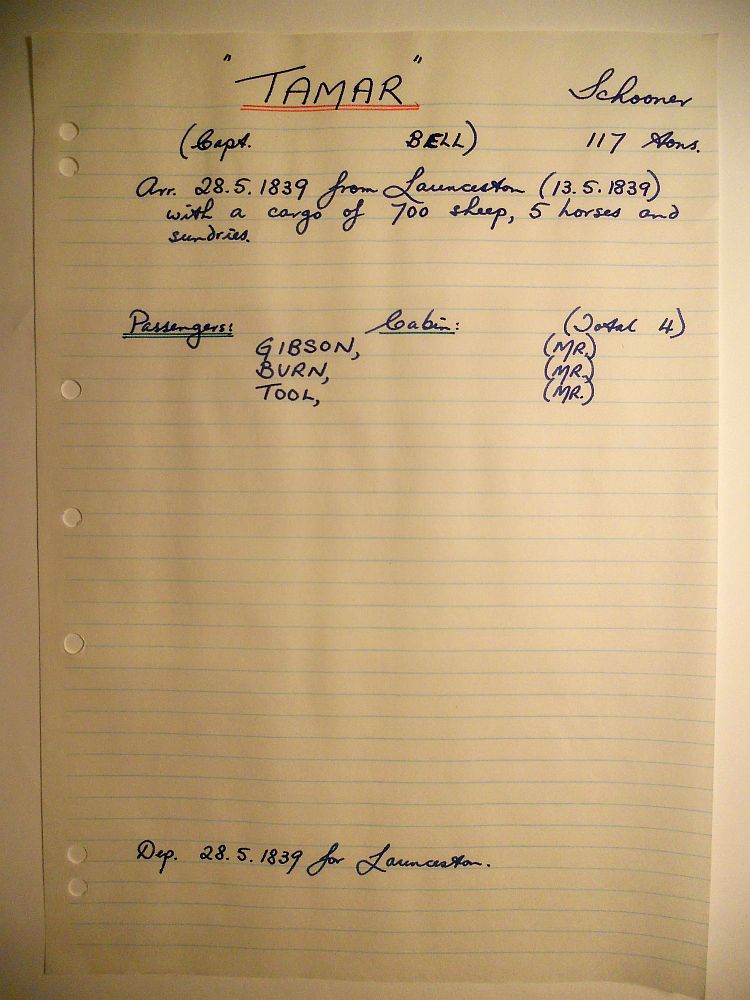 "TAMAR" Schooner
(Capt. BELL) 117 Tons.
Arr. 28.5.1839 from Launceston (13.5.1839)
with a cargo of 700 sheep, 5 horses and
sundries.
Passengers: Cabin: (Total 4)
GIBSON, (MR.)
BURN, (MR.)
TOOL, (MR.)
Dep. 28.5.1839 for Launceston.